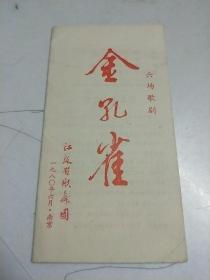 六场歌剧
金孔雀
江苏省歌舞团
一九八〇年六月·南京